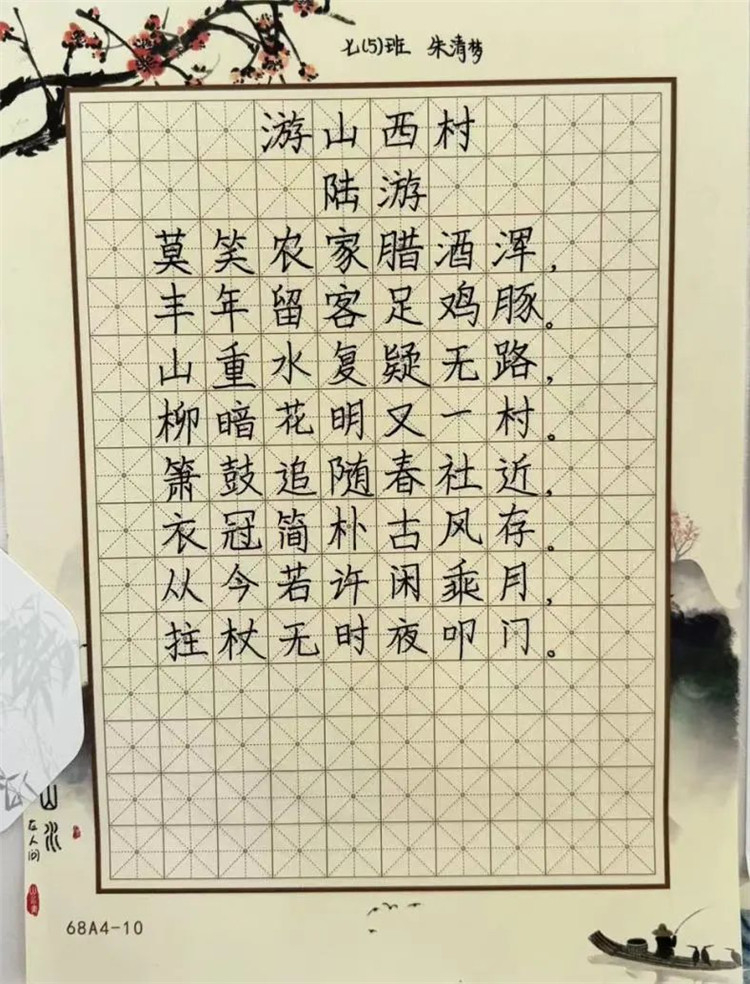 七(5)班 朱清梦
游山西村
陆游
莫笑农家腊酒浑,
丰年留客足鸡豚。
山重水复疑无路,
柳暗花明又一村。
箫鼓追随春社近,
衣冠简朴古风存。
从今若许闲乘月,
拄杖无时夜叩门。
山水
在人间
68A4-10